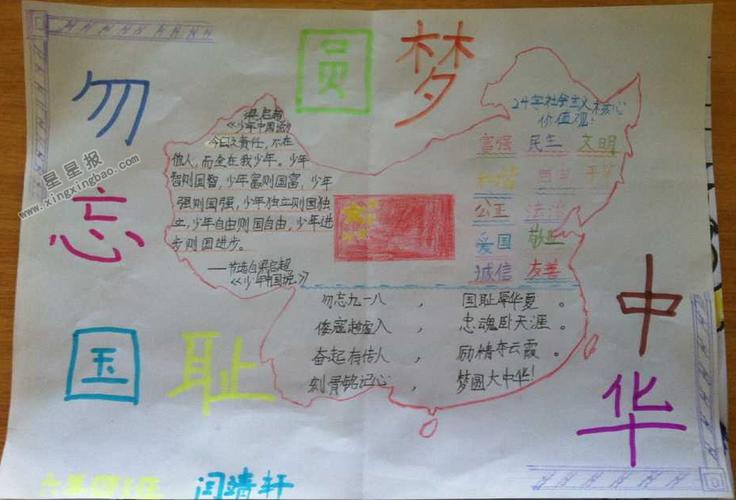 勿忘国耻
圆梦
中华
星星报
www.xingxingbao.com
梁启超
《少年中国说》
今日之责任，不在
他人，而全在我少年。少年
智则国智，少年富则国富，少年
强则国强，少年独立则国独
立，少年自由则国自由，少年进
步则国进步。
——节选自梁启超
《少年中国说》
24字社会主义核心
价值观：
富强 民主 文明
和谐 自由 平等
公正 法治
爱国 敬业
诚信 友善
勿忘九一八， 国耻辱华夏。
倭寇趁虚入， 忠魂卧天涯。
奋起有传人， 励精夺云霞。
刻骨铭记心， 梦圆大中华！
闫靖轩